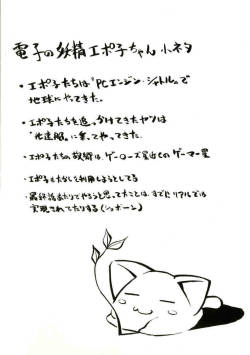 電子の妖精エポ子ちゃん 小ネタ
・エポ子たちは"PCエンジン・シャトル"で
地球にやってきた。
・エポ子たちを追っかけてきたヤツは
に乗ってやってきた。
・エポ子たちの故郷は、ゲーローズ星団の
ゲーマー星
・エポ子もたなしを利用しようとしてる
・最終話あたりでやろうと思ってたことは、すでにリアルでは
実現されてたりする(ショボーン)